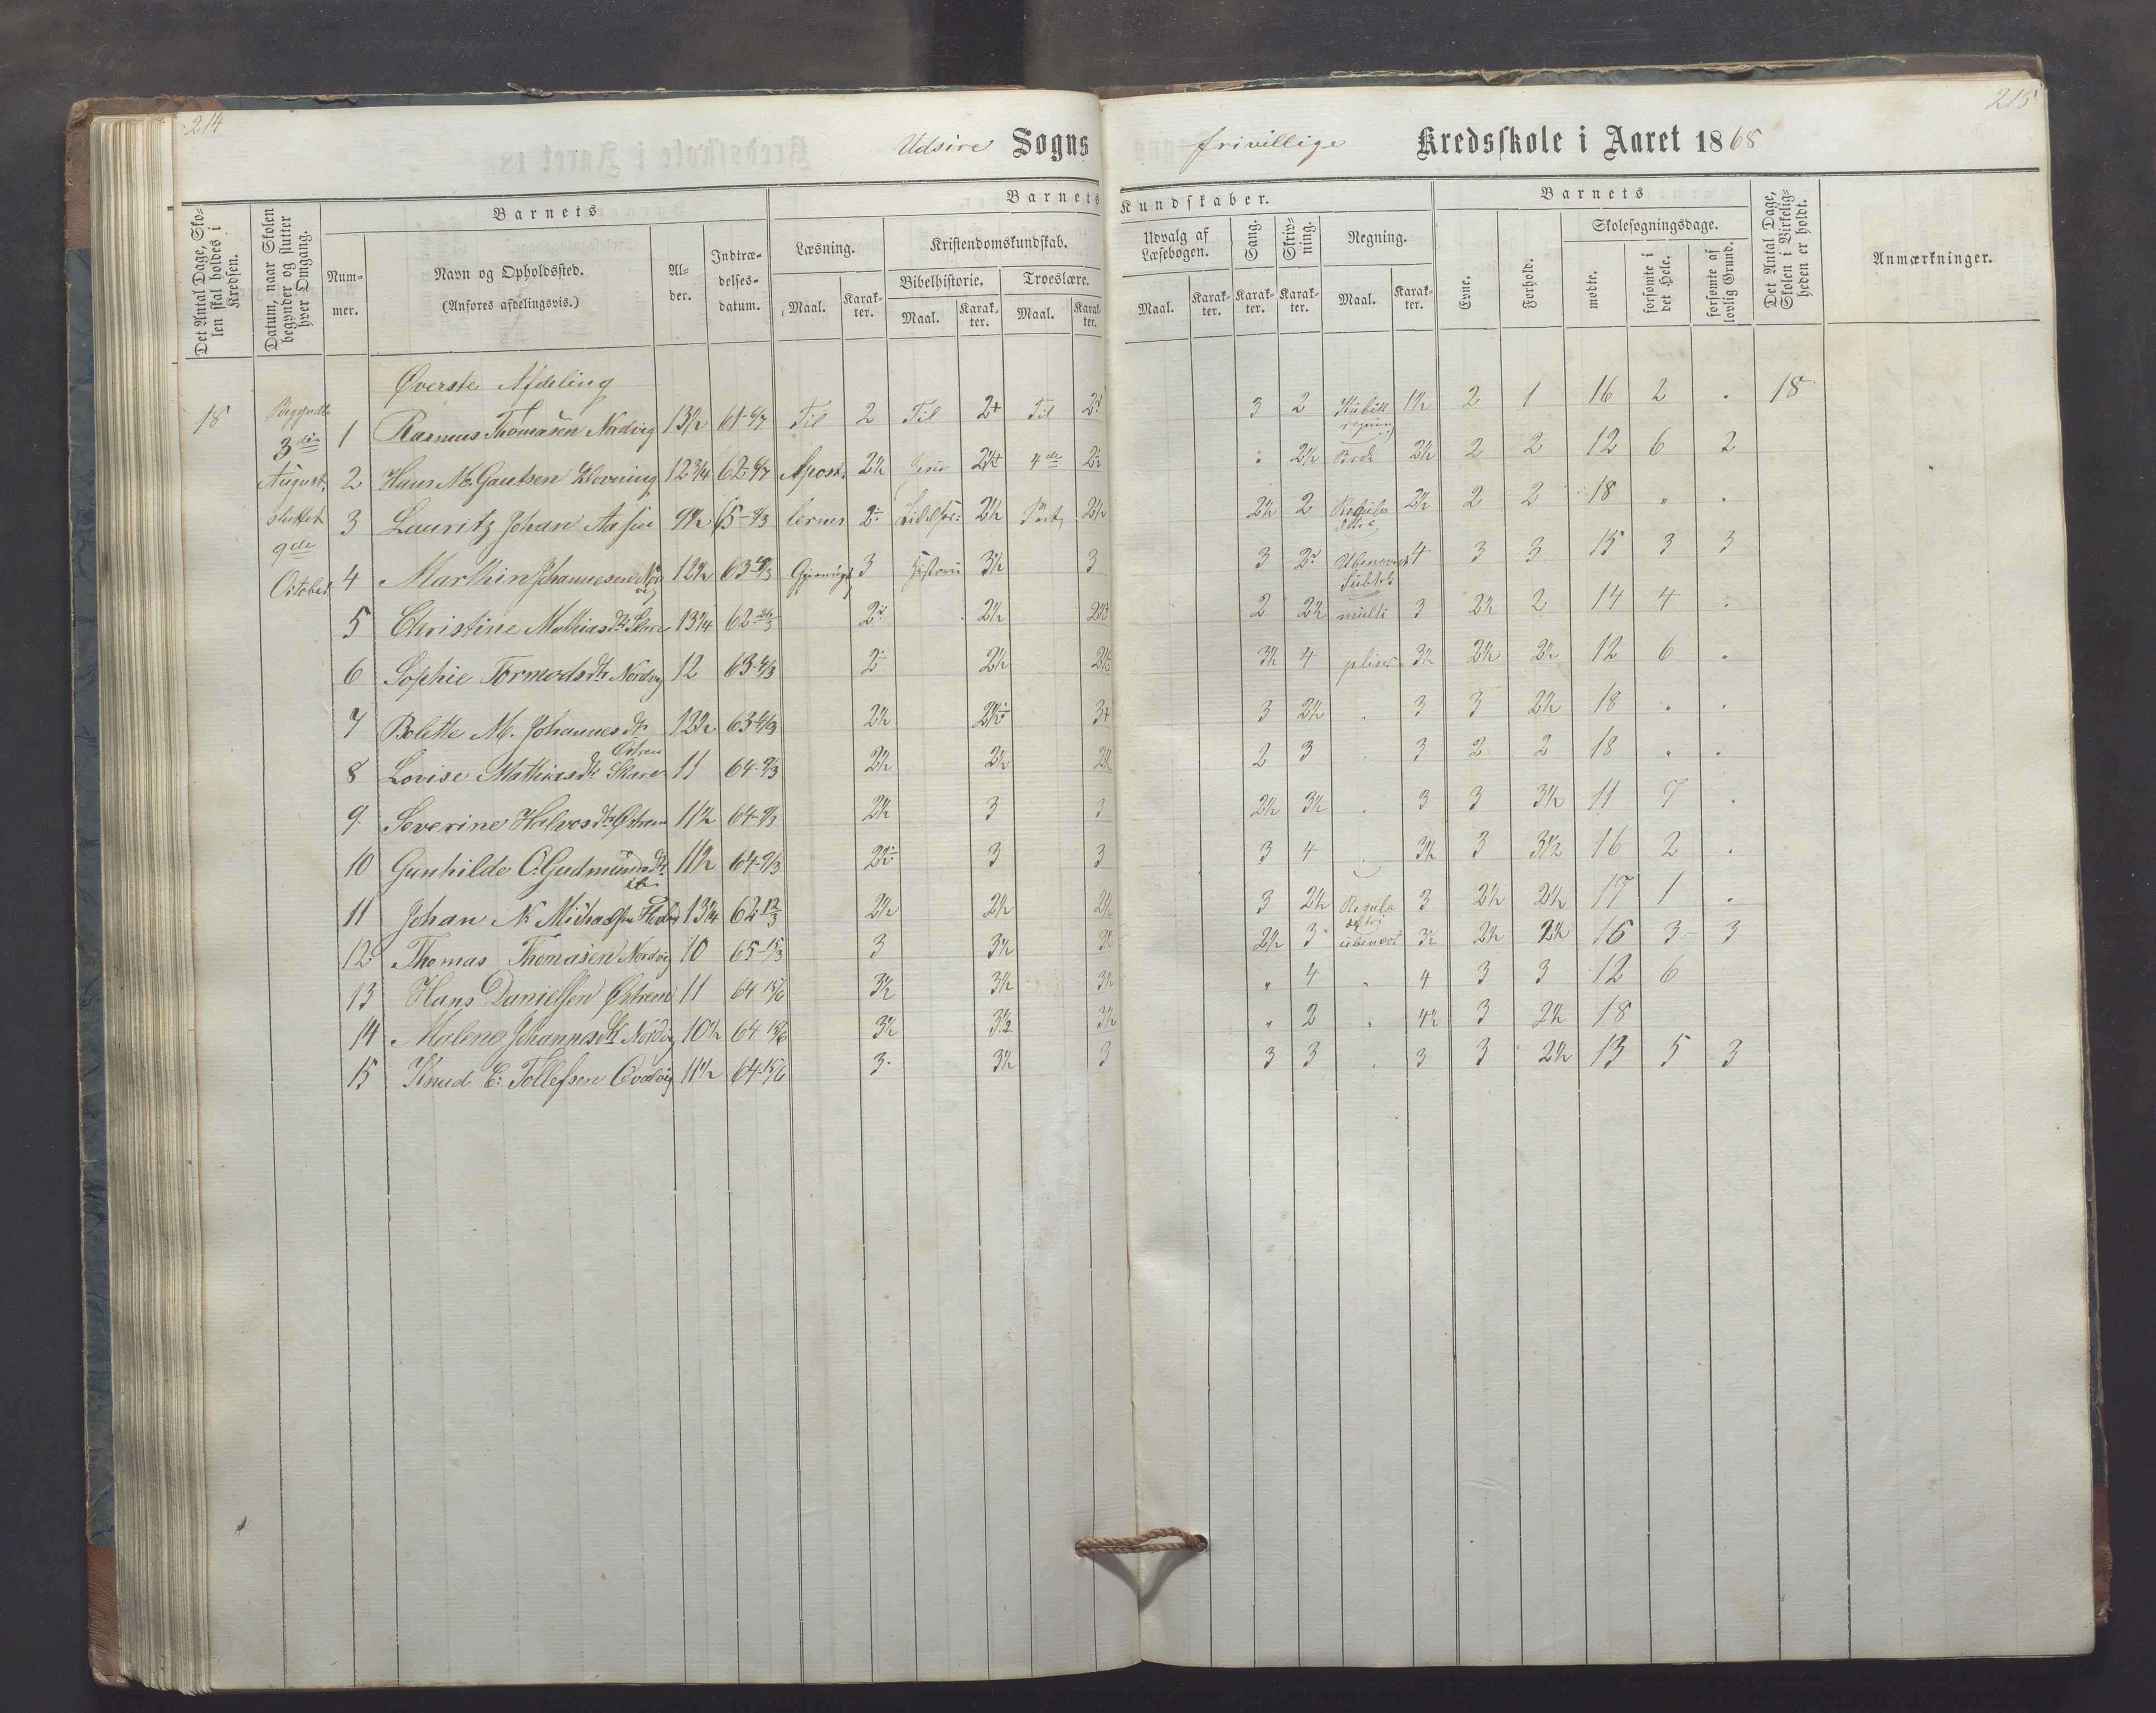 214
Udsire Sogns
frivillige Kredsskole i Aaret 1868
215
Det Antal Dage, Skolen skal holdes i Kredsen.
Datum, naar Skolen begynder og slutter hver Omgang.
Barnets
Nummer.
Navn og Opholdssted.
(Anføres afdelingsvis.)
Alder.
Indtrædelsesdatum.
Barnets Kundskaber.
Læsning.
Maal. Karakter.
Kristendomskundskab.
Bibelhistorie. Troeslære.
Maal. Karakter. Maal. Karakter.
Udvalg af Læsebogen.
Maal. Karakter.
Sang. Karakter.
Skrivning. Karakter.
Regning.
Maal. Karakter.
Barnets
Evne.
Forhold.
Skolesøgningsdage.
mødte.
forsømte i det Hele.
forsømte af lovlig Grund.
Det Antal Dage, Skolen i Virkeligheden er holdt.
Anmærkninger.
Øverste Afdeling
18 Begyndte 1 Rasmus Thomasen Nordvig 13½ 61-6/7 Til 2 Til 2+ Til 3 2 Kubik regning 1½ 2 1 16 2 . 18
3die August, 2 Hans M. Gautsen Klovning 12¾ 62-6/7 Apost. 2½ Jesu 2½+ 4de 2½ 2½ 2 2 12 6 2
sluttet 3 Lauritz Johan Aasen 9½ 65-9/3 lernes 2 Lidelses 2½ Part 2½ 2½ 2 Regula 2½ 2 2 18 " .
9de October 4 Marthin Johannesen Nordvig 12½ 63 3 Historie 3½ 3 3 Ubenævnt 4 3 3 15 3 3
Subtr.
5 Christine Mathiasdtr Skare 13¼ 62-26/3 2½ 2 2½ multi 3 2½ 2 14 4 .
6 Sophie Tormodsdtr Nordvig 12 63-9/3 2½ 2½ 3½ 4 3½ 2½ 2½ 12 6 "
7 Bolette M. Johannesdtr Østrem 12½ 63-9/3 2½ 2½ 3+ 3 2½ . 3 3 2½ 18 " .
8 Lovise Mathiasdtr Skare 11 64-9/3 2½ 2½ 2½ 2 3 . 3 2 2 18 " .
9 Severine Halvorsdtr Østrem 11½ 64-9/3 2½ 3 3 2½ 3½ . 3 3 3½ 11 7 .
10 Gunhilde C. Gudmundsdtr 11½ 64-9/3 3 3 3 4 . 3½ 3 3½ 16 2 .
11 Johan N. Michaelsen 13¾ 62-12/3 2½ 2½ 2½ 3 2½ Regula detri 3 2½ 2½ 17 1 .
12 Thomas Thomasen Nordvig 10 65-15/3 3 3½ 3½ 2½ 3 ubenævt 3½ 2½ 2½ 15 3 3
13 Hans Danielsen Østrem 11 64 15/6 3½ 3½ 3½ " 4 " 4 3 3 12 6
14 Malene Johannesdtr Nordvig 10½ 64 15/6 3½ 3½ 3½ " 2 . 4½ 3 2½ 18
15 Knud E. Tollefsen Qvalvig 11½ 64-15/6 3 3½ 3 3 3 . 3 3 2½ 13 5 3